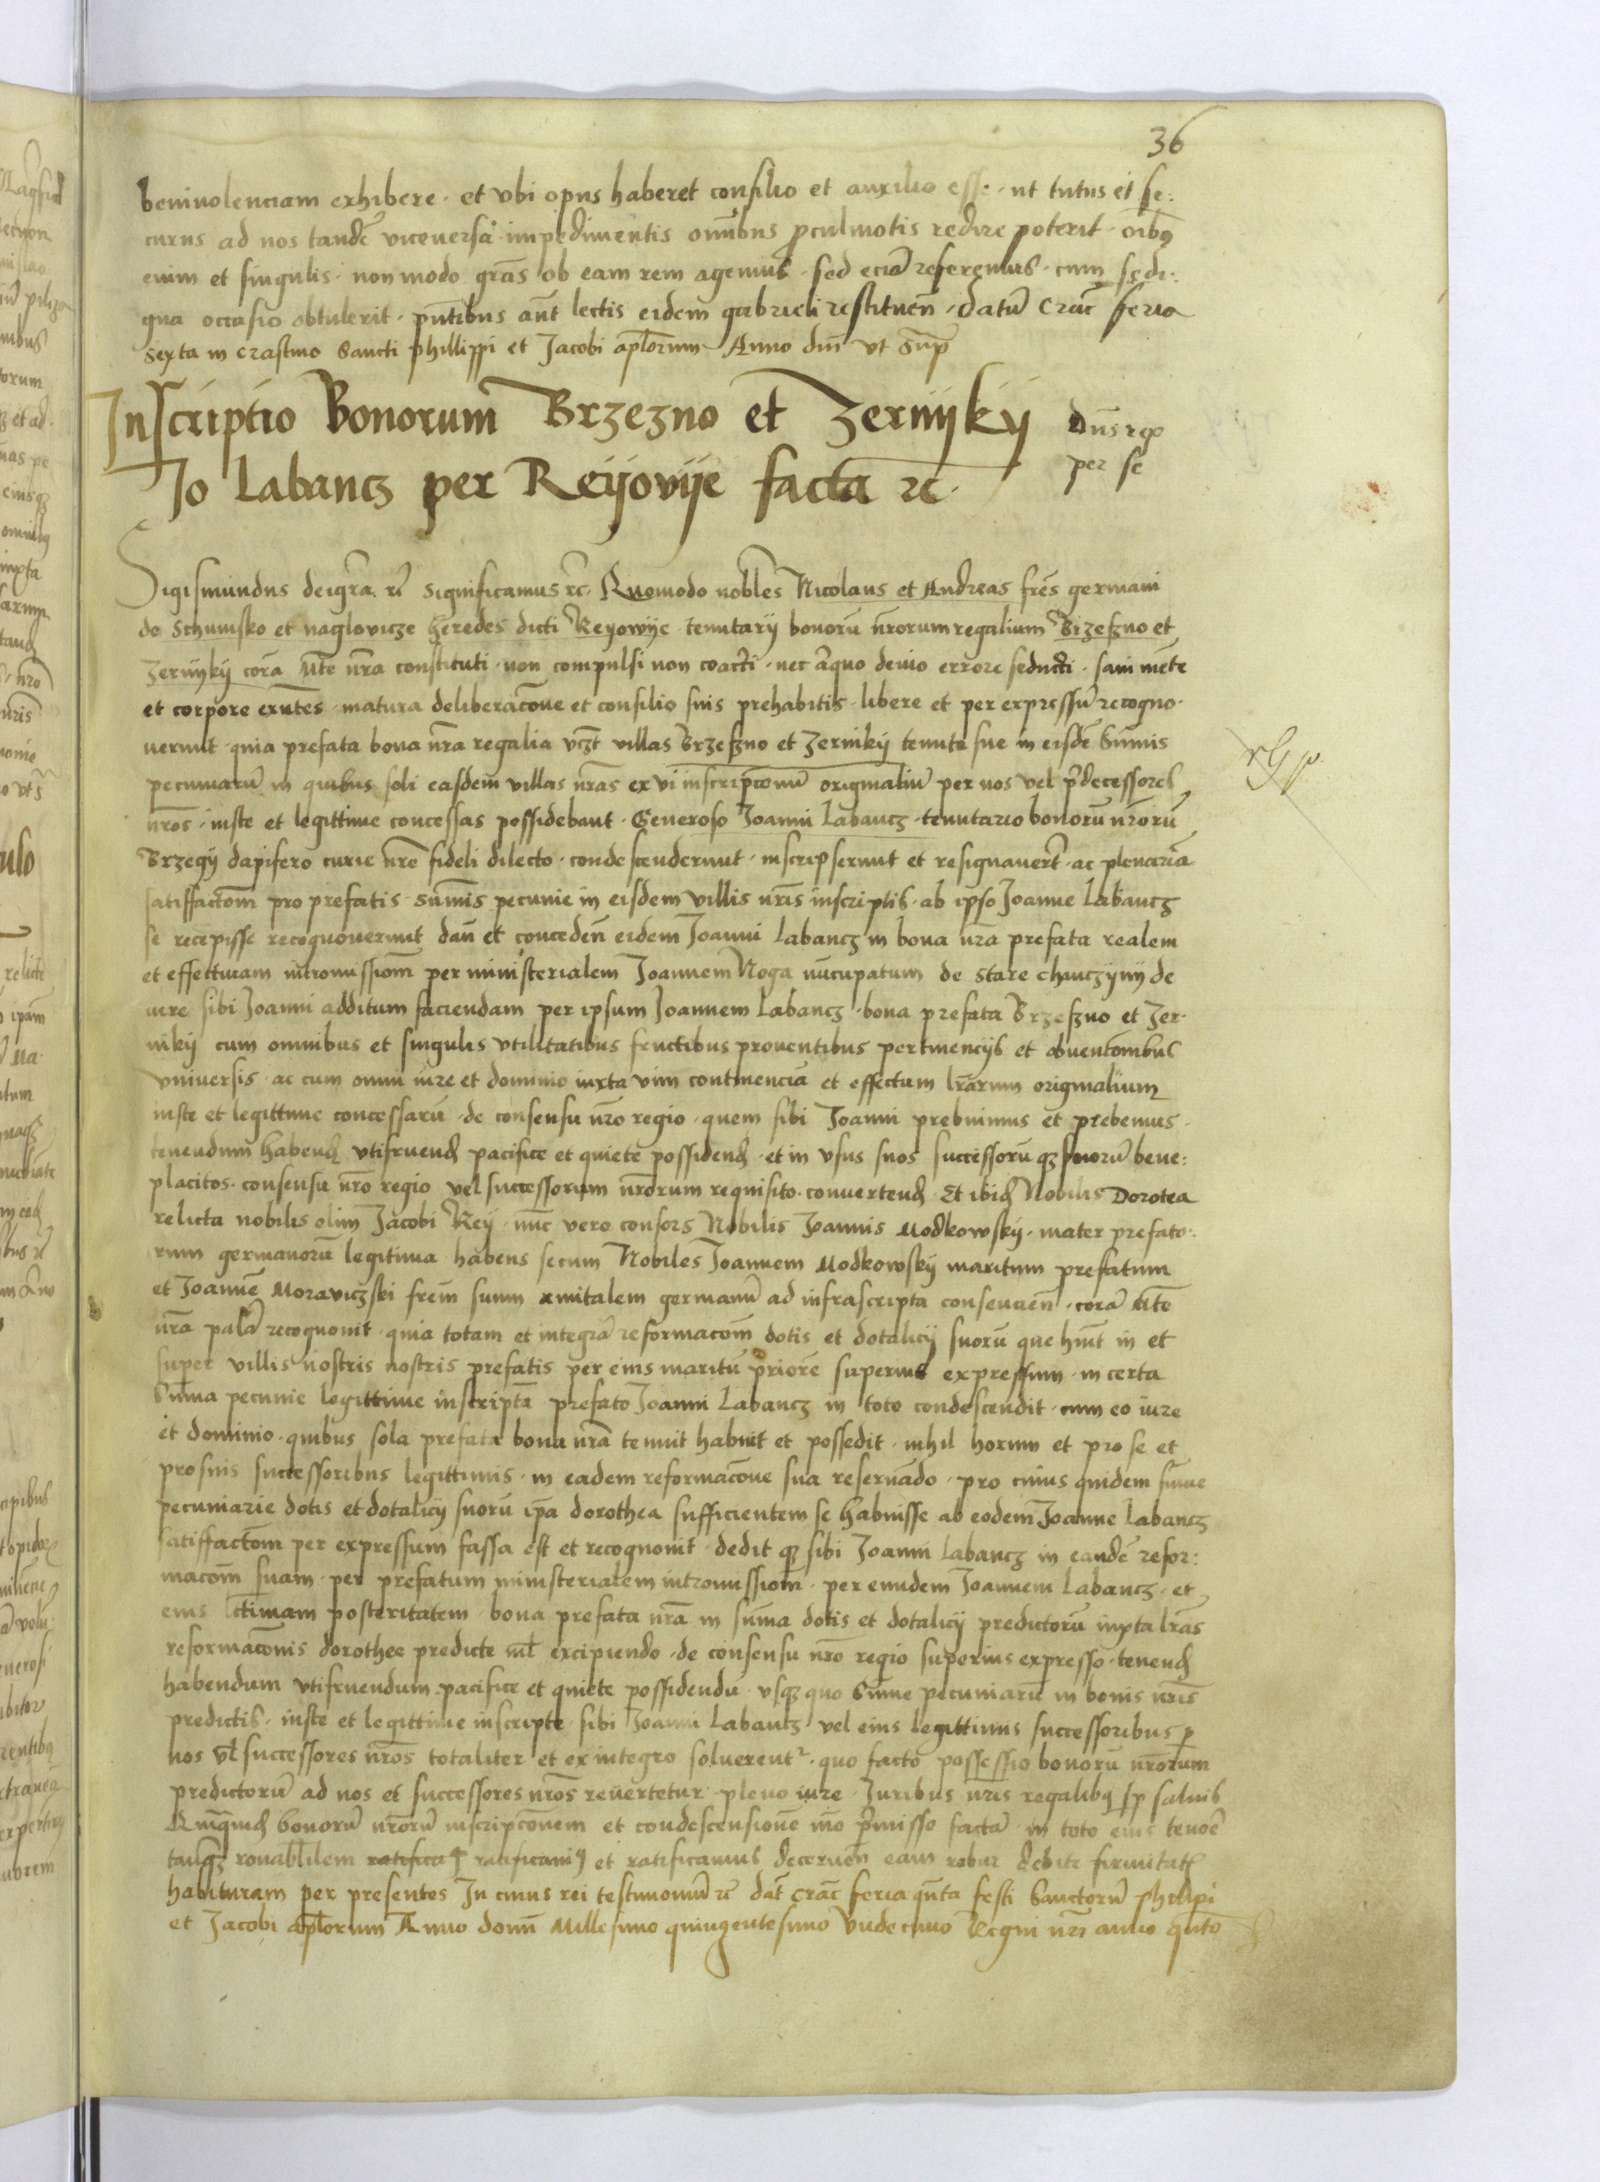 36
benivolenciam exhibere · et vbi opus haberet consilio et auxilio esse · ut tutus et se:
curus ad nos tandē viceversa · impedimentis omībus ꝓculmotis redire poterit · oībꝰ
enim et singulis · non modo grās ob eam rem agemus · sed eciā referemus · cum sedi·
qua occasio obtulerit · pntibus aūt lectis eidem gabrieli restituen̄ · datū Crac̄ feria
sexta in crastino Sancti phillippi et Jacobi aplorum Anno dni vt Supͣ
Inscriptio Bonorum Brzezno et Zernijkij
Dns rex
per se
Jo Labancz per Reijovije facta rc·
Sigismundus dei grā rc significamus rc. Quomodo nobiles Nicolaus et Andreas frēs germani
de Schumsko et naglovicze heredes dicti Reyowije tenutarij bonorū nrorum regalium Brzeszno et
Zernijkij corā Mte nrā constituti · non compulsi non coacti · nec aliquo devio errore seducti · sani mēte
et corpore exn̄tes · matura deliberacōne et consilio suis prehabitis · libere et per expressū recogno·
verunt · quia prefata bona nrā regalia vcȝt villas Brzeszno et Zernikij tenute sue in eisdē Sūmis
pecuniarū in quibus soli easdem villas nrās ex vi inscripcionū originaliū per nos vel p̄decessores
nros · iuste et legittime concessas possidebant · Generoso Joanni Labancz · tenutario bonorū nrorū
Brzegij dapifero curie nre fideli dilecto · condescenderunt · inscripserunt et resignaverūt · ac plenariā
satisfactōm pro prefatis sūmis pecunie in eisdem villis nris inscriptis · ab ipso Joanne Labancz
se recepisse recognoverunt dan̄ et conceden̄ eidem Joanni Labancz in bona nra prefata realem
et effectivam intromissiōm per ministerialem Joannem Noga nūcupatum de Stare chanczijnij de
iure sibi Joanni additum faciendam per ipsum Joannem Labancz · bona prefata Brzeszno et Zer·
nikij cum omnibus et singulis vtilitatibus fructibus proventibus pertinencijs et obventōnibus
vniversis · ac cum omni iure et dominio iuxta vim continenciā et effectum lrārum originalium
iuste et legittime concessarū · de consensu nro regio · quem sibi Joanni prebuimus et prebemus ·
tenendum habend̄ vtifruend̄ pacifice et quiete possidend̄ · et in vsus suos successorūqȝ suorū bene:
placitos · consensu nro regio vel successorum nrorum requisito · convertend̄ · Et ibid̄ Nobilis Dorotea
relicta nobilis olim Jacobi Rey · nūc vero consors Nobilis Joannis Modkowskij · mater prefato·
rum germanorū legitima habens secum Nobiles Joannem Modkowskij maritum prefatum
et Joannē Moraviczski frēm suum amitalem germanū ad infrascripta consencien̄ · corā Mte
nra palā recognovit · quia totam et integrā reformacōm dotis et dotalicij suorū que hūit in et
super villis nostris nostris prefatis per eius maritū priorē superius expressum · in certa
Sūma pecunie legittime inscriptā prefato Joanni Labancz in toto condescendit · cum eo iure
et dominio · quibus sola prefata bona nrā tenuit habuit et possedit · nihil horum et pro se et
pro suis successoribus legittimis · in eadem reformacōne sua reservādo · pro cuius quidem sūme
pecuniarie dotis et dotalicij suorū ipā dorothea sufficientem se habuisse ab eodem Joanne Labancz
satisfactōm per expressum fassa est et recognovit · dedit qȝ sibi Joanni Labancz in eandē refor:
macōm suam · per prefatum ministerialem intromissiōm · per eundem Joannem Labancz · et
eius ltimam posteritatem · bona prefata nrā in sūma dotis et dotalicij predictorū iuxta lrās
reformacōnis dorothee predicte nil excipiendo · de consensu nro regio superius expresso · tenend̄
habendum vtifruendum pacifice et quiete possidendū · vsqȝ quo Sūme pecuniarū in bonis nris
predictis · iuste et legittime inscripte sibi Joanni Labancz vel eius legittimis successoribus ꝑ
nos vl successores nros totaliter et ex integro solverent² · quo facto possessio bonorū nrorum
predictorū ad nos et successores nros revertetur pleno iure · Juribus nris regalibꝰ sp salvis
Quāquid̄ bonorū nrorū inscripcōnem et condescensionē mō p̄misso factā · in toto eius tenore
tanqȝ ronabilem ratificaꝗ ratificaviꝰ et ratificamus decernen̄ eam robur debite firmitatꝭ
habituram per presentes In cuius rei testimoniū rc dat̄ Crac̄ feria qnta festi Sanctorū Philipi
et Jacobi aplorum Anno domī Millesimo quingentesimo vndecimo Regni nri anno qnto